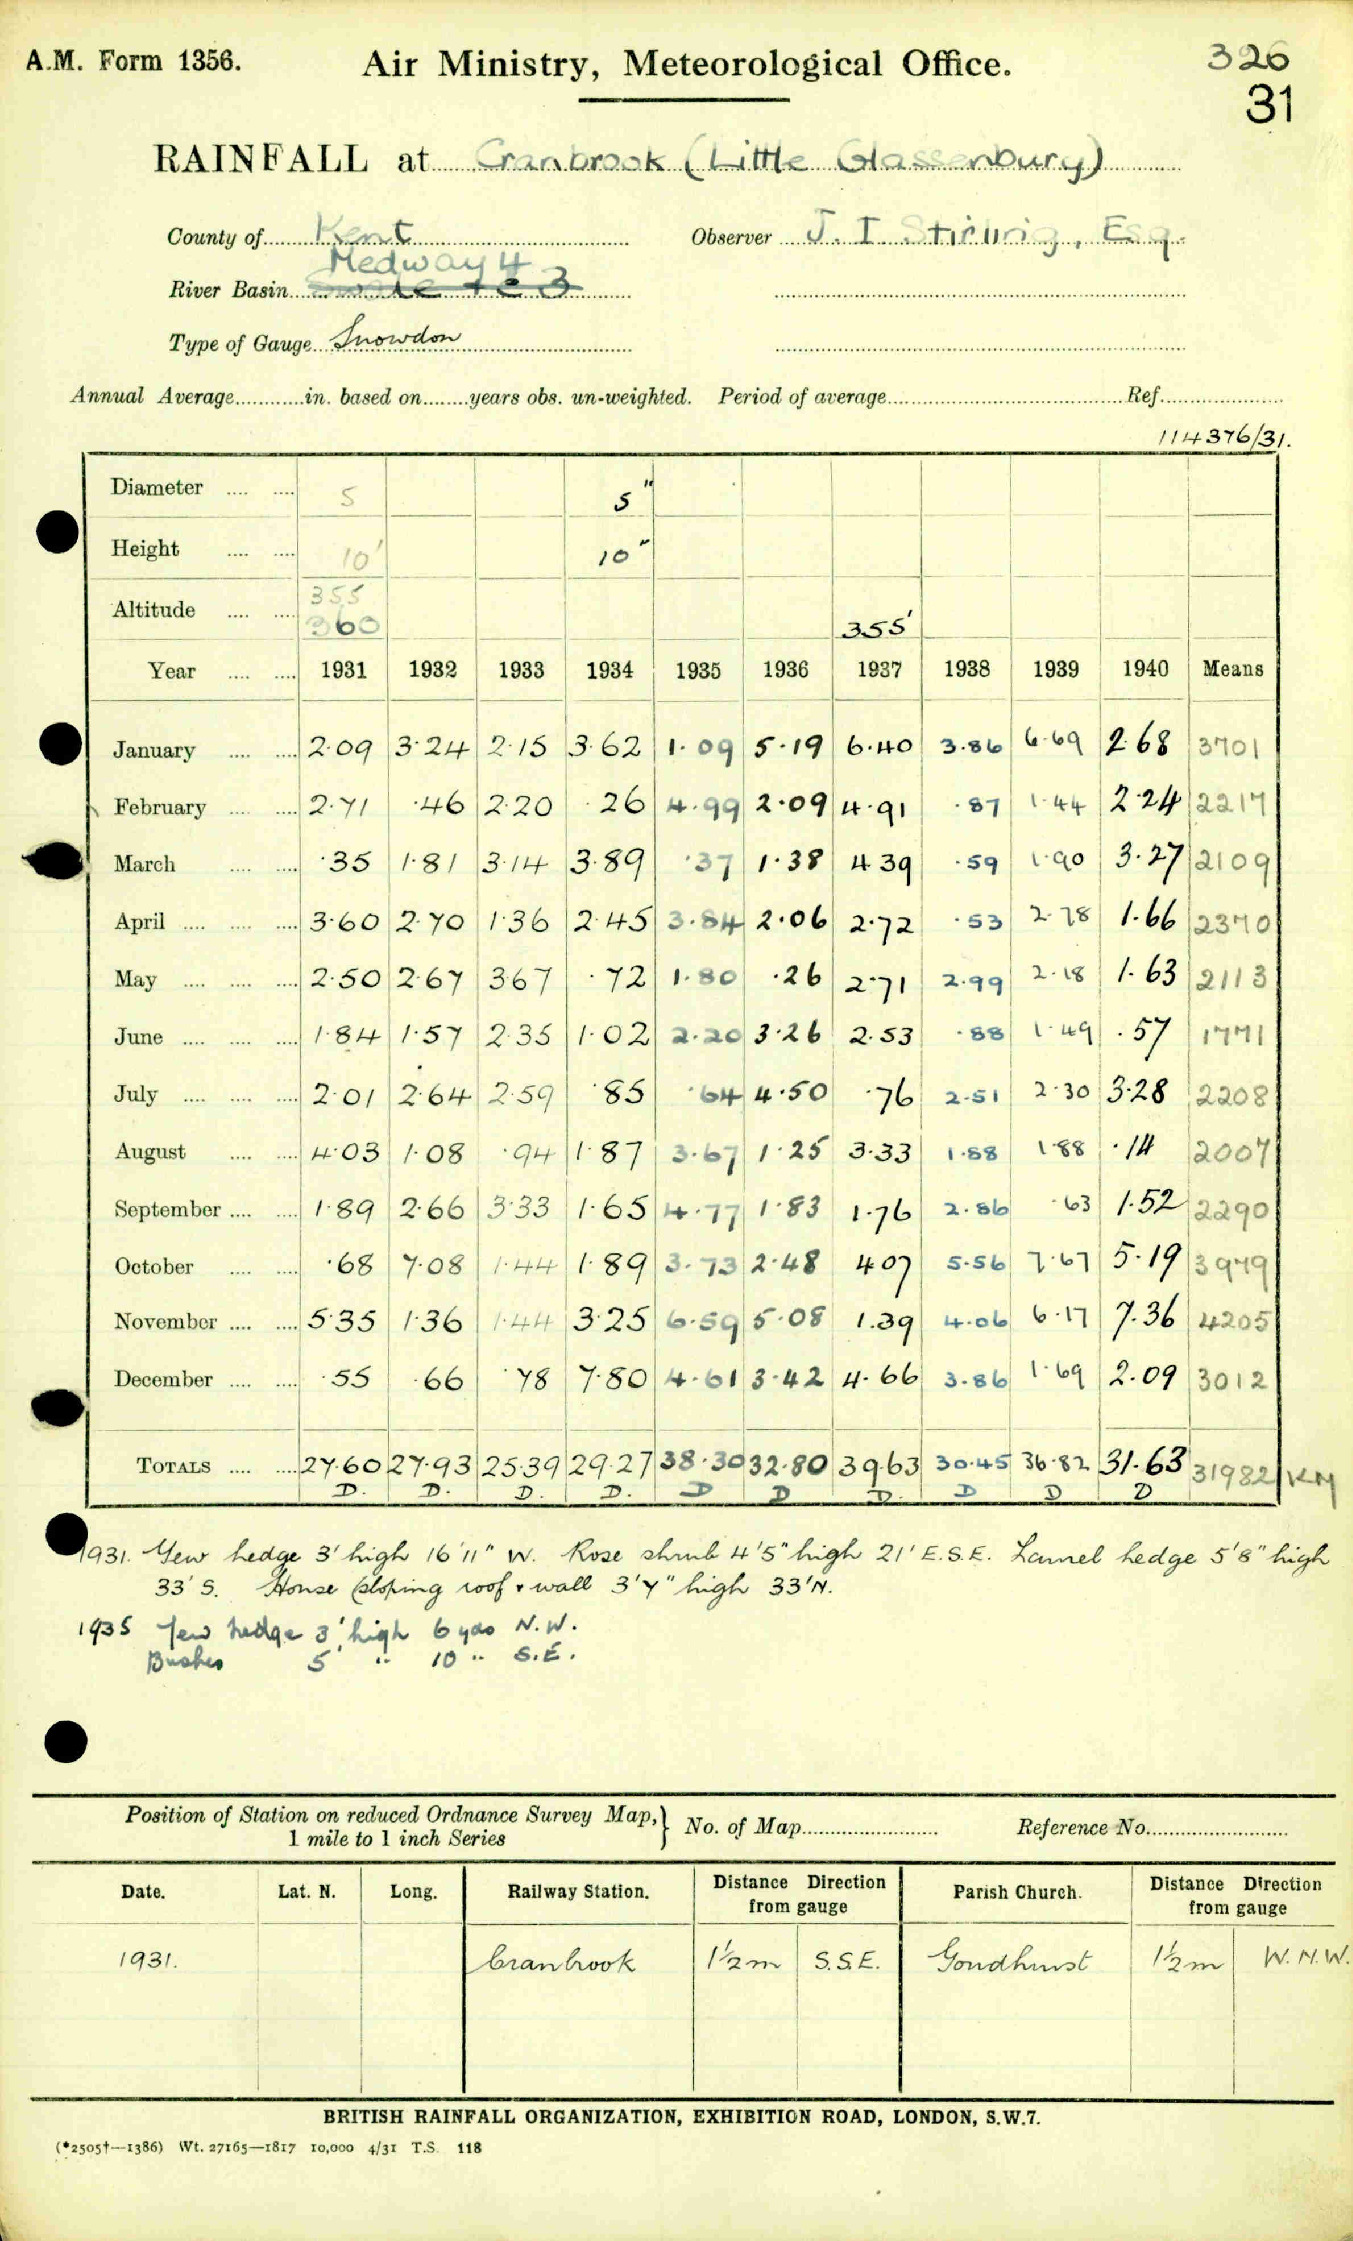 A.M. Form 1356. Air Ministry, Meteorological Office. 326
31
RAINFALL at Cranbrook (Little Glassenbury)
County of Kent Observer J. I Stirling, Esq.
Medway 4
River Basin
Type of Gauge Snowdon
Annual Average in. based on years obs. un-weighted. Period of average Ref.
114376/31.
Diameter 5 5"
Height 10' 10"
355
Altitude 360 355'
Year 1931 1932 1933 1934 1935 1936 1937 1938 1939 1940 Means
January 2·09 3·24 2·15 3·62 1·09 5·19 6·40 3·86 6·69 2·68 3701
February 2·71 ·46 2·20 ·26 4·99 2·09 4·91 ·87 1·44 2·24 2217
March ·35 1·81 3·14 3·89 ·37 1·38 4 39 ·59 1·90 3·27 2109
April 3·60 2·70 1·36 2·45 3·84 2·06 2·72 ·53 2·78 1·66 2370
May 2·50 2·67 3 67 ·72 1·80 ·26 2·71 2·99 2·18 1·63 2113
June 1·84 1·57 2·35 1·02 2·20 3·26 2·53 ·88 1·49 ·57 1771
July 2·01 2·64 2·59 ·85 ·64 4·50 ·76 2·51 2·30 3·28 2208
August 4·03 1·08 ·94 1·87 3·67 1·25 3·33 1·88 1·88 ·14 2007
September 1·89 2·66 3·33 1·65 4·77 1·83 1·76 2·86 ·63 1·52 2290
October ·68 7·08 1·44 1·89 3·73 2·48 4 07 5·56 7·67 5·19 3979
November 5·35 1·36 1·44 3·25 6·59 5·08 1·39 4·06 6·17 7·36 4205
December ·55 ·66 ·78 7·80 4·61 3·42 4·66 3·86 1·69 2·09 3012
TOTALS 27·60 27·93 25·39 29·27 38·30 32·80 39·63 30·45 36·82 31·63 31982 KM
D. D. D. D. D D D. D D D
1931. Yew hedge 3' high 16'11" W. Rose shrub 4'5" high 21' E.S.E. Laurel hedge 5'8" high
33' S. House (sloping roof & wall 3'7" high 33'N.
1935 Yew hedge 3' high 6 yds N.W.
Bushes 5' " 10 " S.E.
Position of Station on reduced Ordnance Survey Map, } No. of Map Reference No.
1 mile to 1 inch Series
Date. Lat. N. Long. Railway Station. Distance Direction from gauge Parish Church. Distance Direction from gauge
1931. Cranbrook 1½m S.S.E. Goudhurst 1½m W.N.W.
BRITISH RAINFALL ORGANIZATION, EXHIBITION ROAD, LONDON, S.W.7.
(*2505†—1386) Wt. 27165—1817 10,000 4/31 T.S. 118